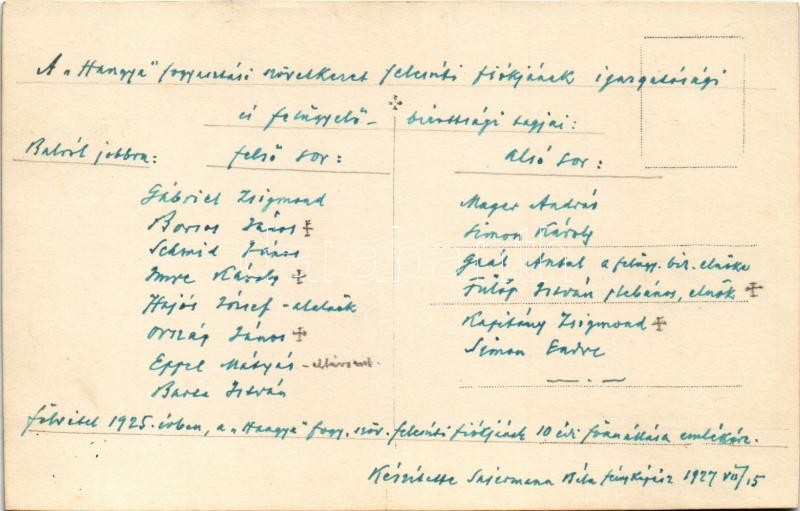 A „Hangya” fogyasztási szövetkezet felcsúti fiókjának igazgatósági
és felügyelő- bizottsági tagjai:
Balról jobbra: felső sor:
Gábriel Zsigmond
Borsos János
Schmid János
Imre Károly
Hajós József - alelnök
Ország János
Eppel Mátyás -
Barta István
alsó sor:
Mager András
Simon Károly
Gaál Antal a felügy. biz. elnöke
Fülöp István plébános, elnök
Kapitány Zsigmond
Simon Endre
fölvétel 1925. évben, a „Hangya” fogy. szöv. felcsúti fiókjának 10 évi fönnállása emlékére.
Készítette Béla fényképész 1927 VII/15